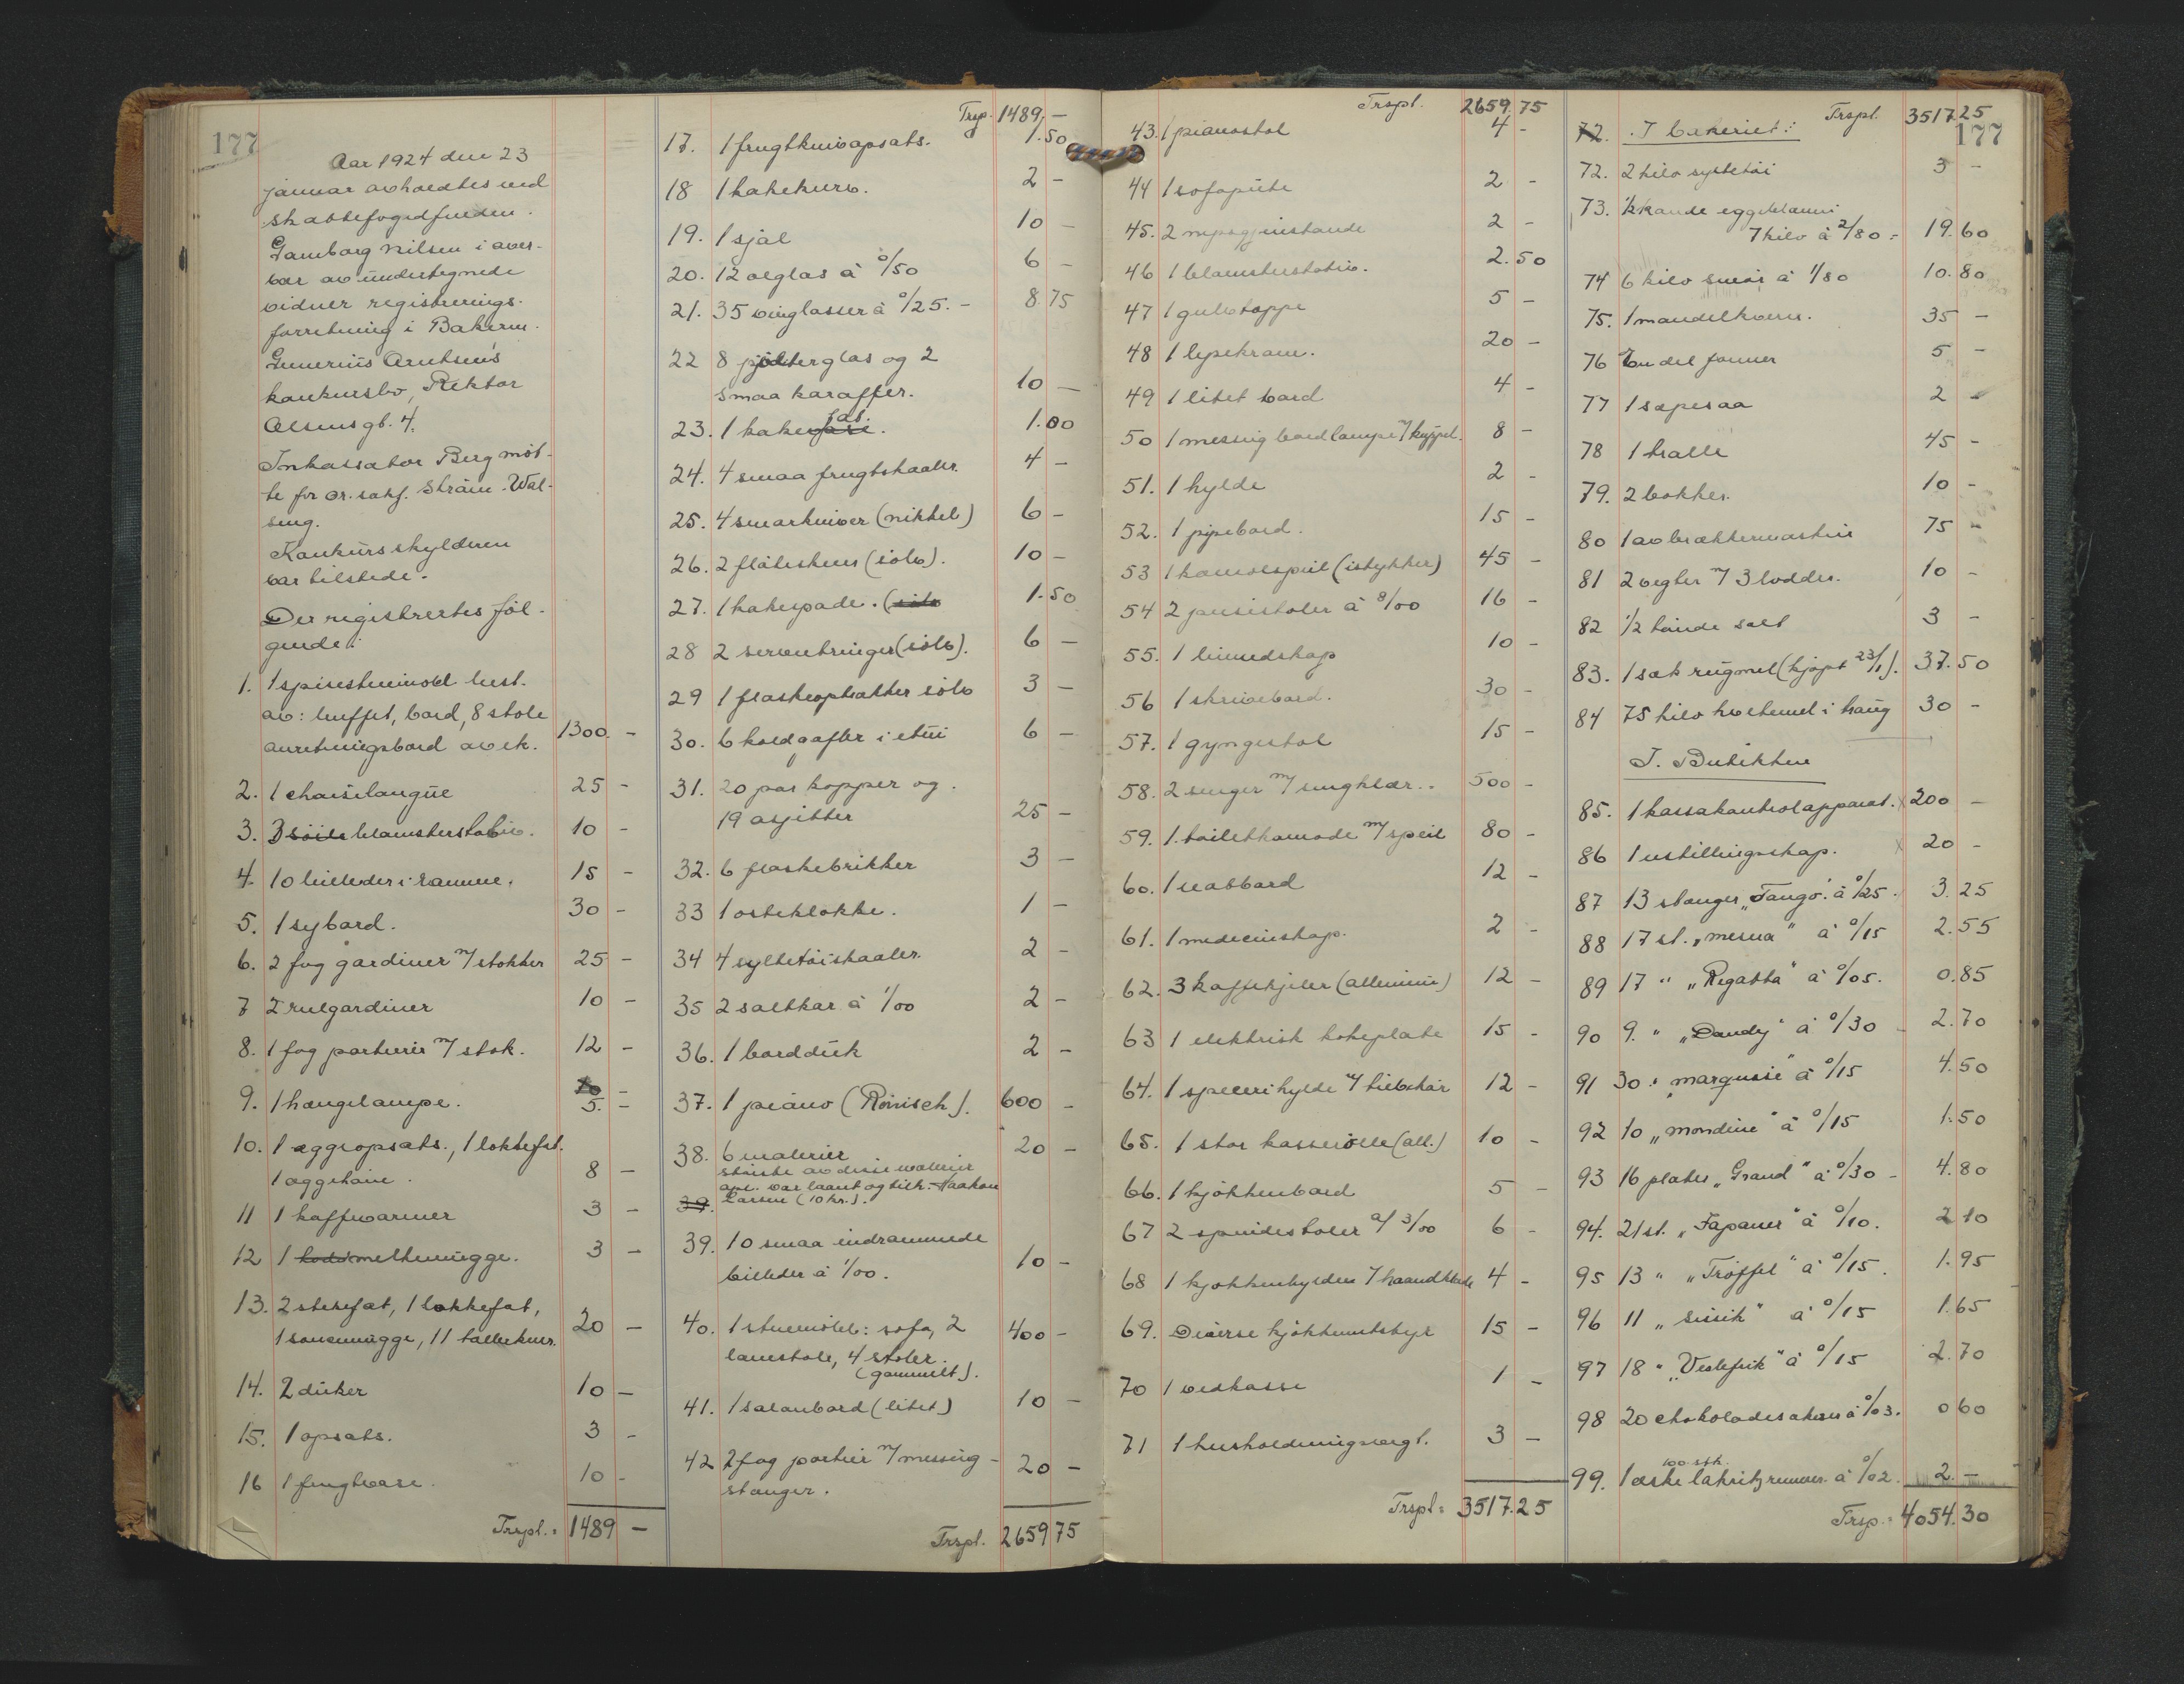 177
Aar 1924 den 23
januar avholdtes ved
skattefogedfuldm.
Gamborg Nilsen i over-
vær av undertegnede
vidner registrerings-
forretning i Bakerm.
Generius Arntsen's
konkursbo, Rektor
Olsensgt. 4.
Inkassator Berg møt-
te for or.sakf. Strøm-Wal-
seng.
Konkursskyldneren
var tilstede.
Der registrertes føl-
gende:
1. 1 spisestuemøbl. best.
av: buffet, bord, 8 stole
anretningsbord av ek. 1300. -
2. 1 chaiselongue 25 -
3. 3 søile blomsterstativ. 10 -
4. 10 billeder i ramme. 15 -
5. 1 sybord. 30 -
6. 2 fag gardiner m/stokker 25 -
7 2 rulgardiner 10 -
8. 1 fag portierer m/stok. 12 -
9. 1 hængelampe. 5. -
10. 1 eggeopsats., 1 lokkefat.
1 æggehøne. 8 -
11 1 kaffevarmer 3 -
12 1 melkemugge. 3 -
13. 2 stekefat, 1 lokkefat,
1 sausemugge, 11 tallerkner. 20 -
14. 2 duker 10 -
15. 1 opsats. 3 -
16 1 frugtvase. 10 -
Trspl.: 1489 -
Trsp. 1489,-
17. 1 frugtknivopsats. 1.50
18 1 kakekurv. 2 -
19. 1 sjal 10 -
20. 12 ølglas à 0/50 6 -
21. 35 vinglasser à 0/25. - 8.75
22 8 pjolterglas og 2
smaa karafler. 10 -
23. 1 kakefat. 1.00
24. 4 smaa frugtskaaler. 4 -
25. 4 smørkniver (nikkel) 6 -
26. 2 fløteskeer (sølv). 10 -
27. 1 kakespade. (sølv 1.50
28 2 serviettringer (sølv). 6 -
29 1 flaskeoptrækker sølv 3 -
30. 6 koldgafler i etui 6 -
31. 20 par kopper og
19 asjetter 25 -
32. 6 flaskebrikker 3 -
33 1 osteklokke. 1 -
34 4 syltetøiskaaler. 2 -
35 2 saltkar à 1/00 2 -
36. 1 bordduk 2 -
37. 1 piano (Rönisch). 600 -
38. 6 malerier 20 -
største av disse malerier
opl. var laant og tilh. Haakon
39. Larsen (10 kr.).
39. 10 smaa indrammede
billeder à 1/00. 10 -
40. 1 stuemøbl: sofa, 2
lænestole, 4 stoler
(gammelt). 400 -
41. 1 salonbord (litet) 10 -
42 2 fag portier m/messing-
stanger. 20 -
Trspl. 2659 75
Trspl. 2659.75
43. 1 pianostol 4 -
44 1 sofapute 2 -
45. 2 nipsgjenstande 2 -
46 1 blomsterstativ. 2.50
47 1 gulvteppe 5 -
48 1 lysekrone. 20 -
49 1 litet bord 4 -
50 1 messing bordlampe m/kuppel. 8 -
51. 1 hylde 2 -
52. 1 pipebord. 15 -
53 1 konsolspeil (istykker) 45 -
54 2 pinnestoler à 8/00 16 -
55. 1 linnedskap 10 -
56 1 skrivebord. 30 -
57. 1 gyngestol 15 -
58. 2 senger m/sengklær.. 500 -
59. 1. toiletkomode m/speil 80 -
60. 1 natbord 12 -
61. 1 medecinskap. 2 -
62. 3 kaffekjeler (alleminium) 12 -
63 1 elektrisk kokeplate 15 -
64. 1 speceri hylde m/tilbehør 12 -
65. 1 stor kasserolle (all.) 10 -
66. 1 kjøkkenbord 5 -
67 2 spindestoler a/ 3/00 6 -
68 1 kjøkkenhylden m/haandklæde 4 -
69. Diverse kjøkkenutstyr 15 -
70 1 vedkasse 1 -
71 1 husholdningsvegt. 3 -
Trspl: 3517.25
Trspl. 3517.25
177
72. I bakeriet:
72. 2 kilo syltetøi 3 -
73. 1/2 kande eggeblomme
7 kilo à 2/80 = 19.60
74 6 kilo smør à 1/80 10.80
75. 1 mandelkvern. 35 -
76 En del former 5 -
77 1 sæpesaa 2 -
78 1 tralle 45 -
79. 2 bokker. 10 -
80 1 avbrækkermaskin 75 -
81 2 vegter m/3 lodder. 10 -
82 1/2 tønde salt 3 -
83. 1 sæk rugmel (kjøpt 23/1). 37.50
84 75 kilo hvetemel i haug 30 -
I. Butikken
85. 1 kassakontrolapparat. x 200 -
86 1 utstillingsskap. x 20 -
87 13 stanger „Tango". à 0/25. 3.25
88 17 st. „mesna" à 0/15 2.55
89 17 " „Regatta" à 0/05. 0.85
90 9. " „Dandy" à 0/30 2.70
91 30 " „marquise" à 0/15 4.50
92 10 „mondine" à 0/15 1.50
93 16 plater „Grand" à 0/30 - 4.80
94. 21 st. „Japaner" à 0/10. 2 10
95 13 " „Trøffel" à 0/15. 1.95
96 11 „ sissik" à 0/15 1.65
97 18 " „Veslefrik" à 0/15 2.70
98 20 chokoladesakerier à 0/03. 0 60
100 stk.
99. 1 æske lakritzremmer à 0/02. 2. -
Trsp.: 4054.30